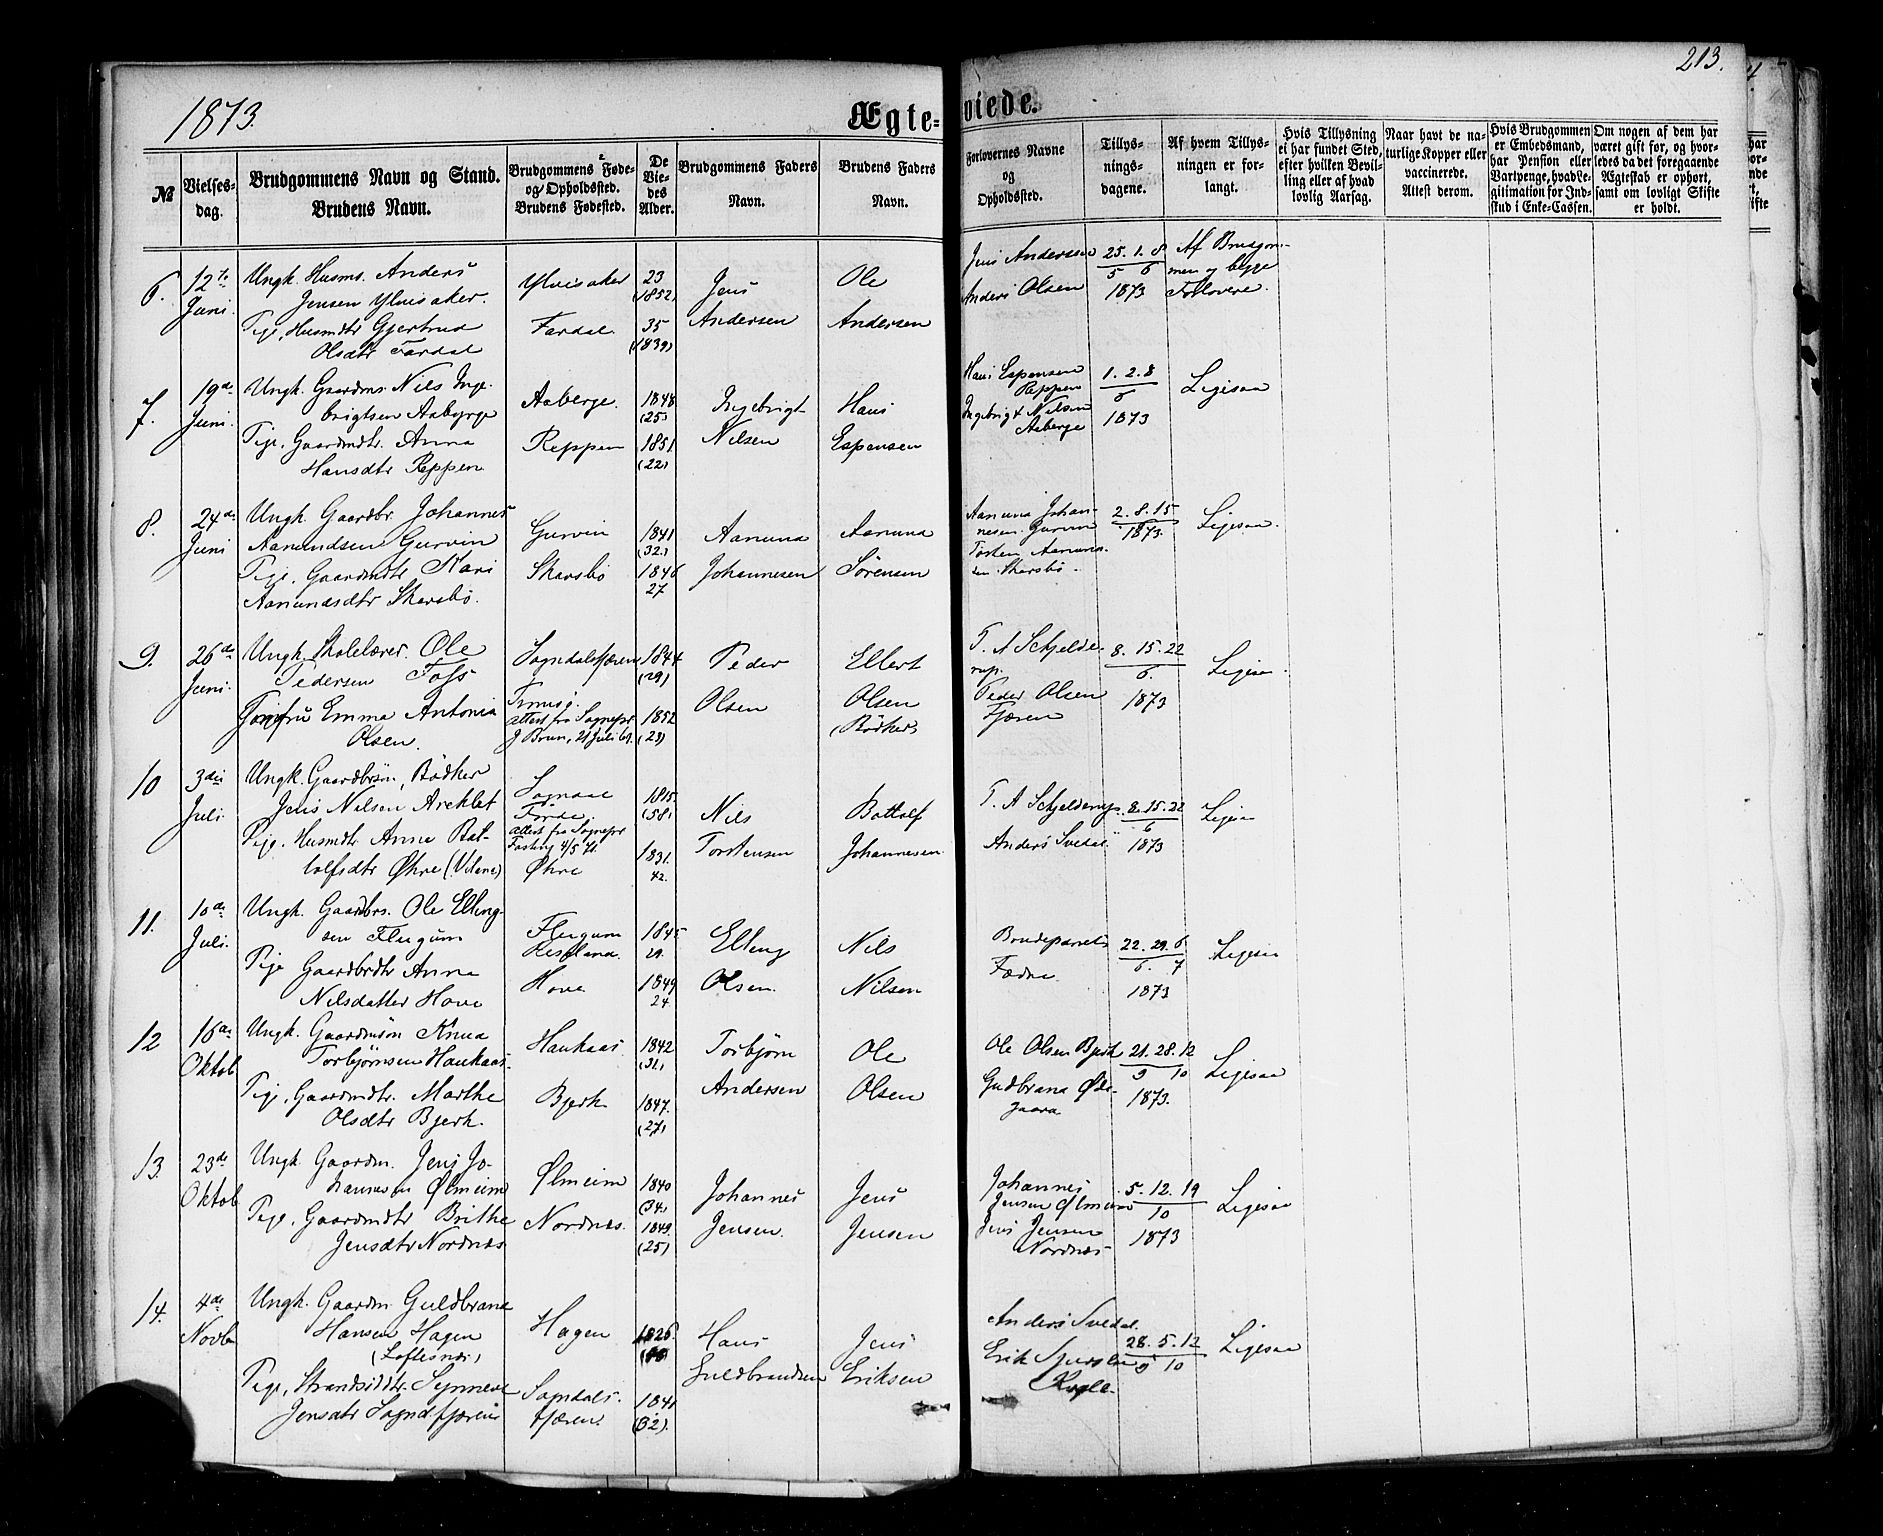 213.
1873.
Ægte-
viede.
№
Vielses-
dag.
Brudgommens Navn og Stand.
Brudens Navn.
Brudgommens Føde-
og Opholdssted.
Brudens Fødested.
De
Vie-
des
Alder.
Brudgommens Faders
Navn.
Brudens Faders
Navn.
Forlovernes Navne
og
Opholdssted.
Tillys-
nings-
dagene.
Af hvem Tillys-
ningen er for-
langt.
Hvis Tillysning
ei har fundet Sted,
efter hvilken Bevil-
ling eller af hvad
lovlig Aarsag.
Naar havt de na-
turlige Kopper eller
vaccinerede.
Attest derom.
Hvis Brudgommen
er Embedsmand,
har Pension eller
Vartpenge, hvad Le-
gitimation for Ind-
skud i Enke-Cassen.
Om nogen af dem har
været gift for, og hvor-
ledes da det foregaaende
Ægteskab er ophørt,
samt om lovligt Skifte
er holdt.
6. 12te Juni.
Ungk. Husms. Anders
Jensen Ylvisaker.
Pige, Husmdtr Gjertrud
Olsdtr Fardal
Ylvisaker
Fardal
23
(1852)
35
(1839)
Jens
Andersen
Ole
Andersen
Jens Anderssen
Anders Olsen
25. 1. 8
5 6
1873
Af Brudgom-
men og begge
Forlovere.
7. 19de Juni.
Ungk. Gaardms. Nils Inge-
brigtsen Aaberge
Pige, Gaardmdtr. Anna
Hansdtr Reppen
Aaberge.
Reppen
1848
(25)
1851
(22)
Ingebrigt
Nilsen
Hans
Espensen
Hans Espensen
Reppen
Ingebrigt Nilsen
Aaberge
1. 2. 8
6
1873
Ligesaa
8. 24de Juni
Ungk. Gaardbr. Johannes
Aamundsen Gurvin
Pige, Gaardmdtr Kari
Aamundsdtr Skarsbö.
Gurvin
Skarsbö
1841
(32)
1846
27
Aamund
Johannesen
Aamund
Sörensen
Aamund Johan-
nesen Gurvin
Torsten Aamund-
sen Skarsbö.
2. 8. 15
1873.
Ligesaa.
9. 26de Juni.
Ungk. Skolelærer. Ole
Pedersen Foss
Jomfru Emma Antonia
Olsen.
Sogndalsfjæren
attest fra Sognepr
J Brun, 21 Juli
1844
(29)
1852
(21)
Peder
Olsen
Ellert
Olsen
(Bödker)
T. A Schjelde-
rup.
Peder Olsen
Fjæren
8. 15. 22
6.
1873
Ligesaa.
10 3die Juli.
Ungk. Gaardbrsön, Bödker
Jens Nilsen Areklet
Pige. Husmdtr Anna Bot-
tolfsdtr Øhre
Sogndal
Förde.
attest fra Sognepr
Fasting 4/5 71.
Øhre
1815.
(58)
1831.
42.
Nils
Torstensen
Bottolf
Johannesen
T. A Schjelderup
Anders Svedal
8. 15. 22
6
1873
Ligesaa
11. 10de Juli.
Ungk. Gaardbrs. Ole Elling-
sen Flugum
Pige Gaardbrdtr Anna
Nilsdatter Hove
Flugum
Hove
1845
29.
1849
24
Elling
Olsen.
Nils
Nilsen
Brudeparrets
Fædre
22. 29. 6
6. 7
1873
Ligesaa
12 16de Oktob
Ungk. Gaardmsön Knud
Torbjörnsen Haukaas.
Pige, Gaardmdtr. Marthe
Olsdtr Bjerk.
Haukaas.
Bjerk
1842
(31)
1847.
(27)
Torbjörn
Andersen
Ole
Olsen
Ole Olsen Bjerk
Gudbrand Øde-
gaard
21. 28. 12
9 10
1873.
Ligesaa
13. 23de Oktob
Ungk. Gaardm. Jens Jo-
hannesen Ølmeim
Pige, Gaardmdtr Brithe
Jensdtr Nordnæs
Ølmeim
Nordnæs.
1840
(34)
1849.
(25)
Johannes
Jensen.
Jens
Jensen
Johannes
Jensen Ølmeim
Jens Jensen
Nordnæs
5. 12. 19
10
1873
Ligesaa
14. 4de Novbr
Ungk. Gaardm. Guldbrand
Hansen Hagen
(Loftesnæs)
Pige, Strandsiddtr. Synneve
Jensdtr Sogndalsfjæren
Hagen
Sogndals-
fjæren.
1826.
1841
(32).
Hans
Guldbrandsen
Jens
Eriksen
Anders Svedal.
Erik
28. 5. 12
9 10
Ligesaa